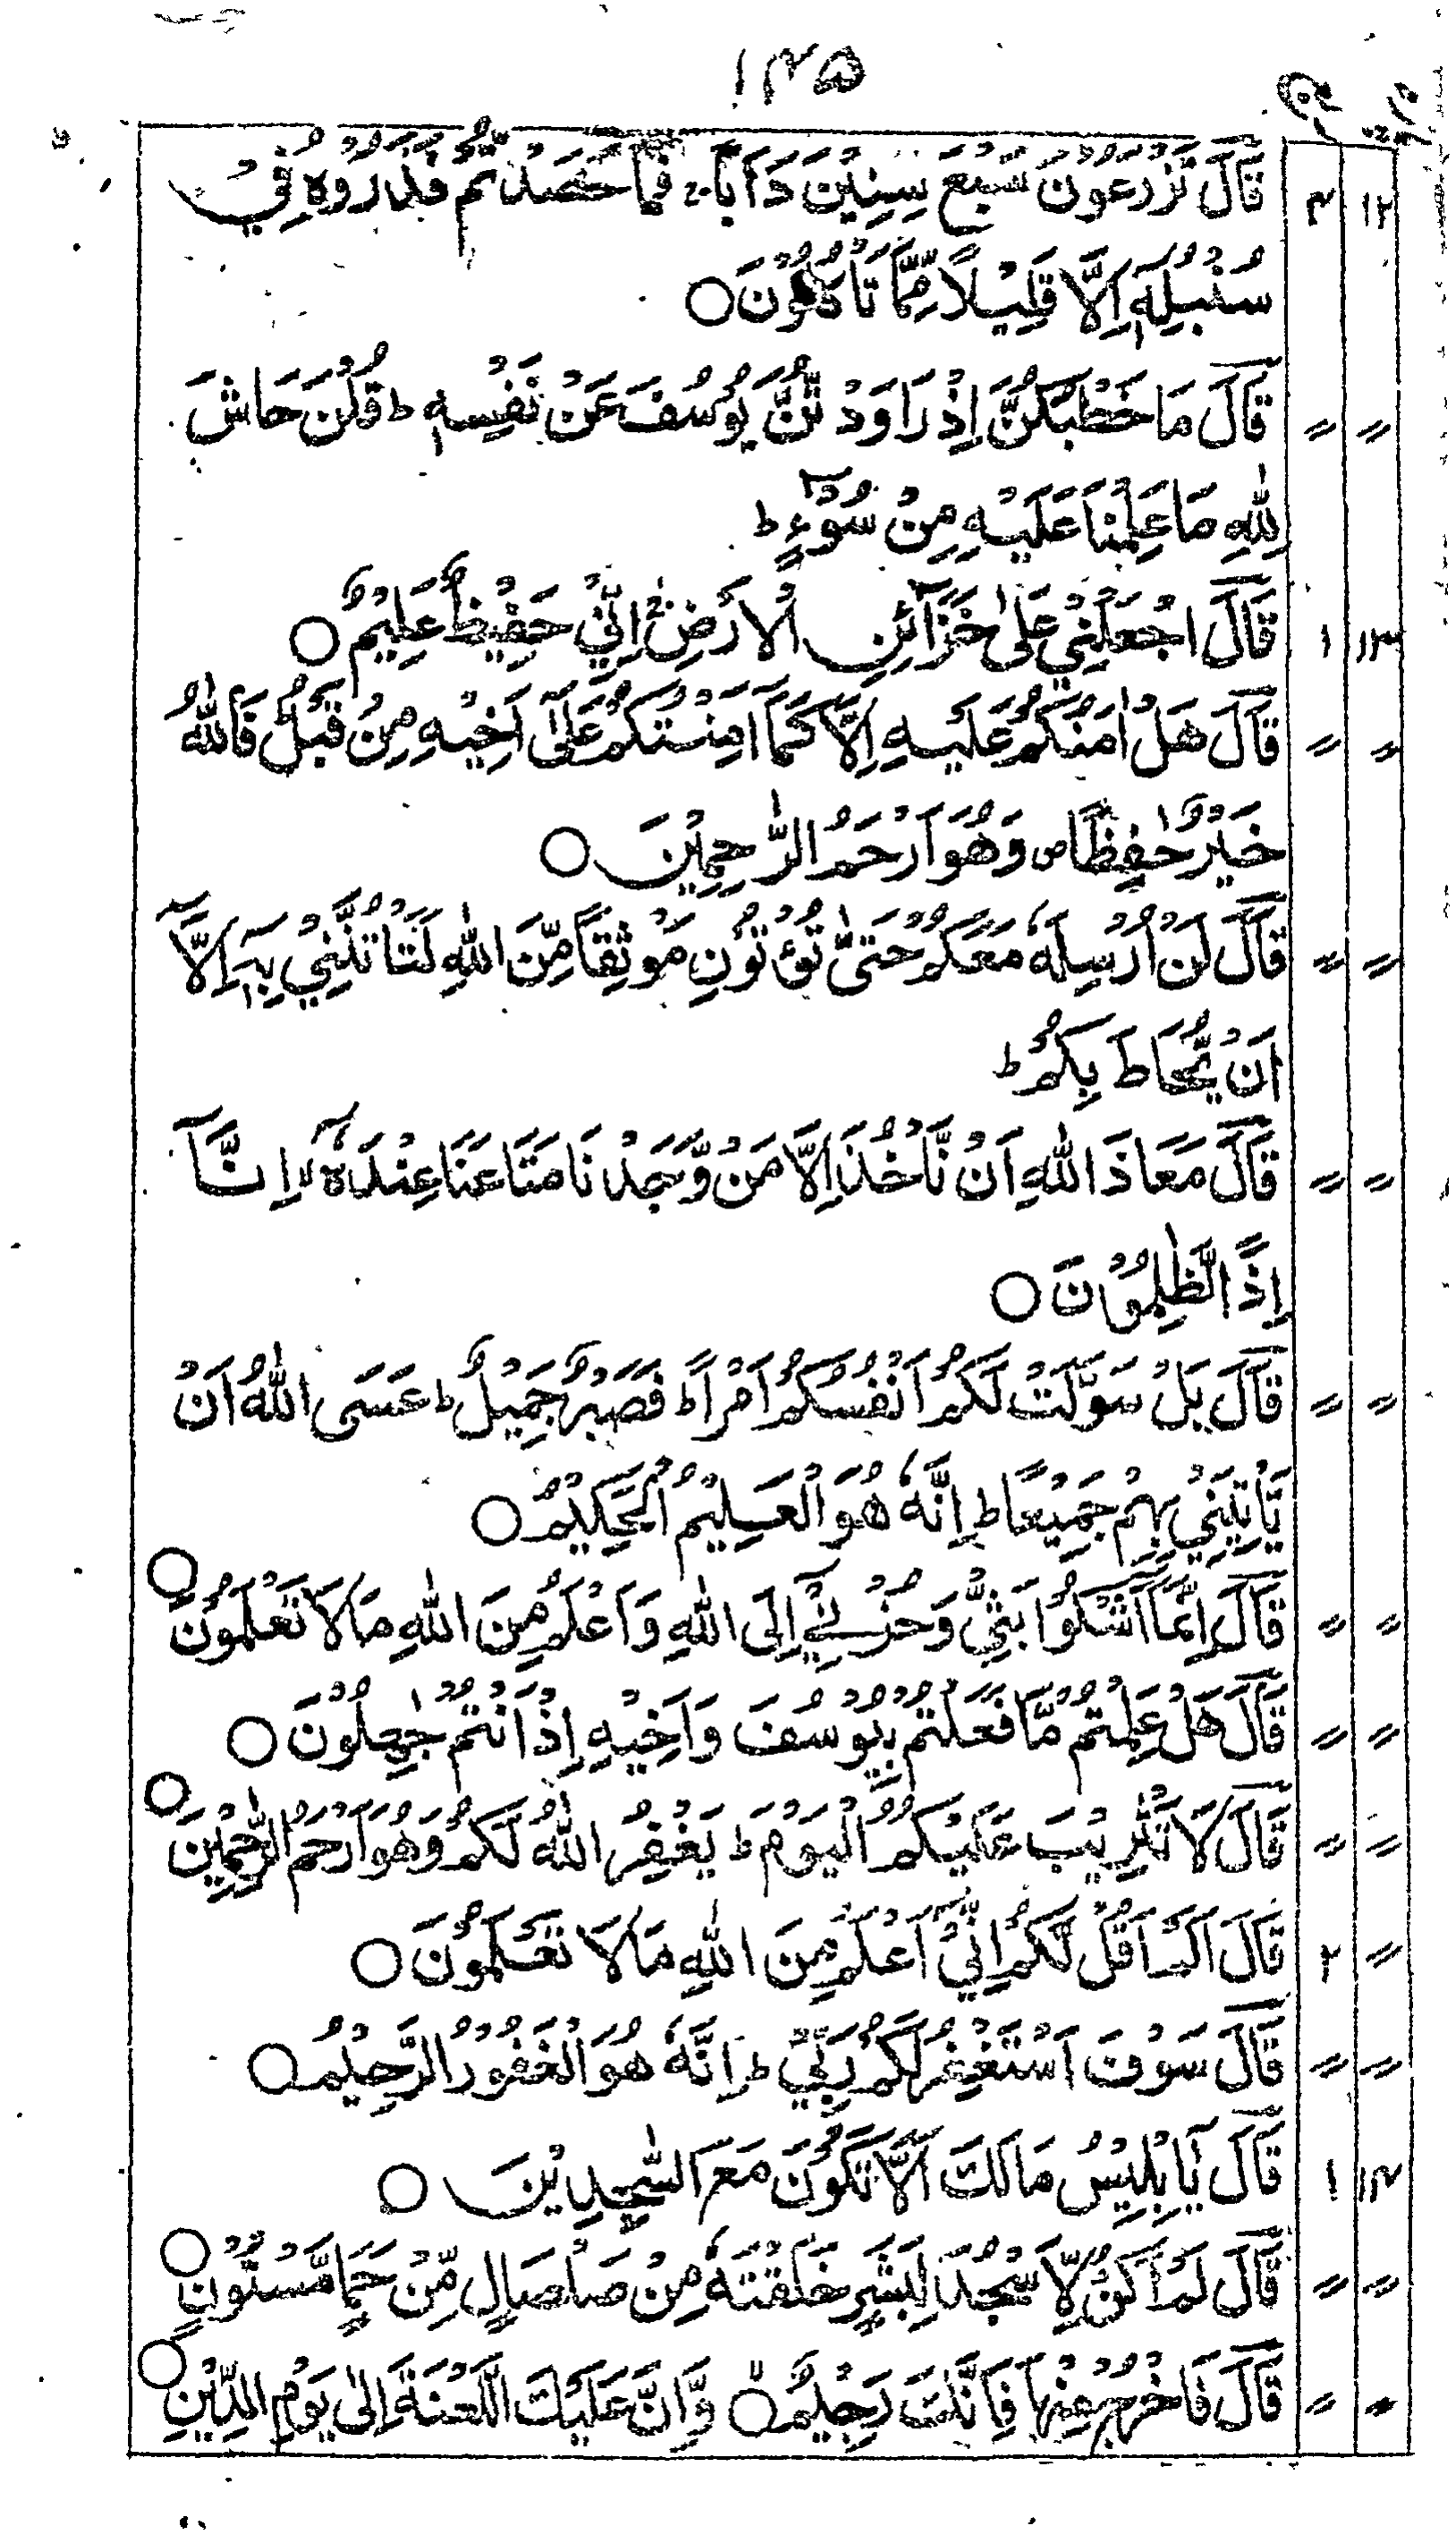 ۱۴۵
۱۲ ۴ قَالَ تَزْرَعُوْنَ سَبْعَ سِنِيْنَ دَاَبًا ۚ فَمَا حَصَدْتُّمْ فَذَرُوْهُ فِيْ
سُنْۢبُلِهٖٓ اِلَّا قَلِيْلًا مِّمَّا تَاْكُلُوْنَ ○
〃 〃 قَالَ مَا خَطْبُكُنَّ اِذْ رَاوَدْتُّنَّ يُوْسُفَ عَنْ نَّفْسِهٖ ط قُلْنَ حَاشَ
لِلّٰهِ مَا عَلِمْنَا عَلَيْهِ مِنْ سُوْٓءٍ ط
۱۳ ۱ قَالَ اجْعَلْنِيْ عَلٰى خَزَآئِنِ الْاَرْضِ ۚ اِنِّيْ حَفِيْظٌ عَلِيْمٌ ○
〃 〃 قَالَ هَلْ اٰمَنُكُمْ عَلَيْهِ اِلَّا كَمَآ اَمِنْتُكُمْ عَلٰٓى اَخِيْهِ مِنْ قَبْلُ ط فَاللّٰهُ
خَيْرٌ حٰفِظًا ص وَهُوَ اَرْحَمُ الرّٰحِمِيْنَ ○
〃 〃 قَالَ لَنْ اُرْسِلَهٗ مَعَكُمْ حَتّٰى تُؤْتُوْنِ مَوْثِقًا مِّنَ اللّٰهِ لَتَاْتُنَّنِيْ بِهٖٓ اِلَّآ
اَنْ يُّحَاطَ بِكُمْ ط
〃 〃 قَالَ مَعَاذَ اللّٰهِ اَنْ نَّاْخُذَ اِلَّا مَنْ وَّجَدْنَا مَتَاعَنَا عِنْدَهٗٓ لا اِنَّآ
اِذًا لَّظٰلِمُوْنَ ○
〃 〃 قَالَ بَلْ سَوَّلَتْ لَكُمْ اَنْفُسُكُمْ اَمْرًا ط فَصَبْرٌ جَمِيْلٌ ط عَسَى اللّٰهُ اَنْ
يَّاْتِيَنِيْ بِهِمْ جَمِيْعًا ط اِنَّهٗ هُوَ الْعَلِيْمُ الْحَكِيْمُ ○
〃 〃 قَالَ اِنَّمَآ اَشْكُوْا بَثِّيْ وَحُزْنِيْٓ اِلَى اللّٰهِ وَاَعْلَمُ مِنَ اللّٰهِ مَا لَا تَعْلَمُوْنَ ○
〃 〃 قَالَ هَلْ عَلِمْتُمْ مَّا فَعَلْتُمْ بِيُوْسُفَ وَاَخِيْهِ اِذْ اَنْتُمْ جٰهِلُوْنَ ○
〃 〃 قَالَ لَا تَثْرِيْبَ عَلَيْكُمُ الْيَوْمَ ط يَغْفِرُ اللّٰهُ لَكُمْ وَهُوَ اَرْحَمُ الرّٰحِمِيْنَ ○
〃 ۲ قَالَ اَلَمْ اَقُلْ لَّكُمْ اِنِّيْٓ اَعْلَمُ مِنَ اللّٰهِ مَا لَا تَعْلَمُوْنَ ○
〃 〃 قَالَ سَوْفَ اَسْتَغْفِرُ لَكُمْ رَبِّيْ ط اِنَّهٗ هُوَ الْغَفُوْرُ الرَّحِيْمُ ○
۱۴ ۱ قَالَ يٰٓاِبْلِيْسُ مَالَكَ اَلَّا تَكُوْنَ مَعَ السّٰجِدِيْنَ ○
〃 〃 قَالَ لَمْ اَكُنْ لِّاَسْجُدَ لِبَشَرٍ خَلَقْتَهٗ مِنْ صَلْصَالٍ مِّنْ حَمَاٍ مَّسْنُوْنٍ ○
〃 〃 قَالَ فَاخْرُجْ مِنْهَا فَاِنَّكَ رَجِيْمٌ ○ لا وَّاِنَّ عَلَيْكَ اللَّعْنَةَ اِلٰى يَوْمِ الدِّيْنِ ○